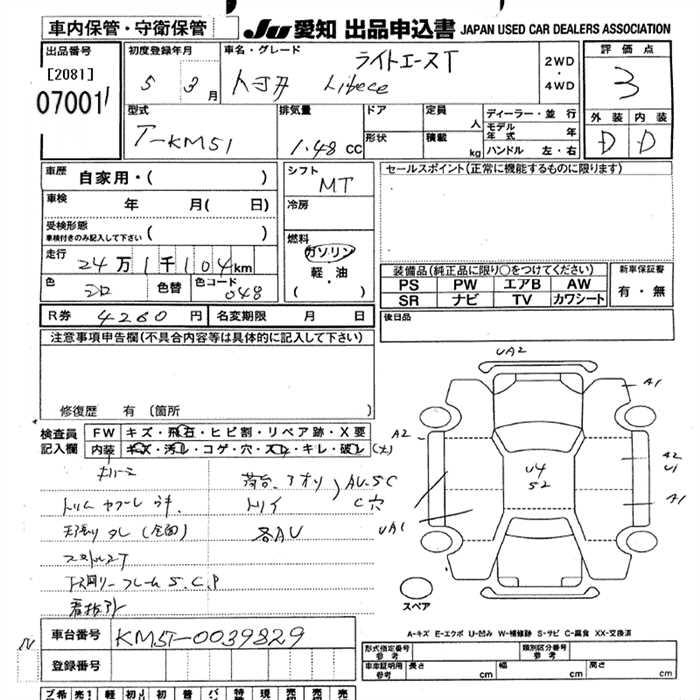 車内保管・守衛保管
JU 愛知 出品申込書 JAPAN USED CAR DEALERS ASSOCIATION
出品番号 初度登録年月 車名・グレード ライトエースT 2WD・4WD 評価点
[2081] 5 3月 トヨタ Libece 3
07001
型式 排気量 ドア 定員 人 ディーラー・並行 外装 内装
T-KM51 1.48 CC 形状 積載 kg モデル年式 年 D D
ハンドル 左・右
車歴 自家用・( ) シフト MT セールスポイント(正常に機能するものに限ります)
車検 年 月( 日) 冷房
受検形態 車検付きのみ記入して下さい ( )
走行 24万1千104km 燃料 ガソリン
軽・油
( ・ )
色 シロ 色替 色コード 048
装備品(純正品に限り○をつけてください) 新車保証書
PS PW エアB AW 有・無
SR ナビ TV カワシート
R券 4260円 名変期限 月 日 後日品
注意事項申告欄(不具合内容等は具体的に記入して下さい)
修復歴 有 (箇所 )
検査員記入欄 FW キズ・飛石・ヒビ割・リペア跡・X要
内装 キズ・汚レ・コゲ・穴・スレ・キレ・破レ(大)
荷台、アオリ AU.S.C
トリイ C穴
天張りタレ(全面) 各AU
下廻リ フレーム S.C.P
UA2
A1
A2 A2
U1
U4
S2
A1
UA1
スペア
A-キズ E-エクボ U-凹み W-補修跡 S-サビ C-腐食 XX-交換済
車台番号 KM51-0039829
登録番号
形式指定番号 参考 類別区分番号 参考
車車証明用 参考 長さ cm 幅 cm 高さ cm